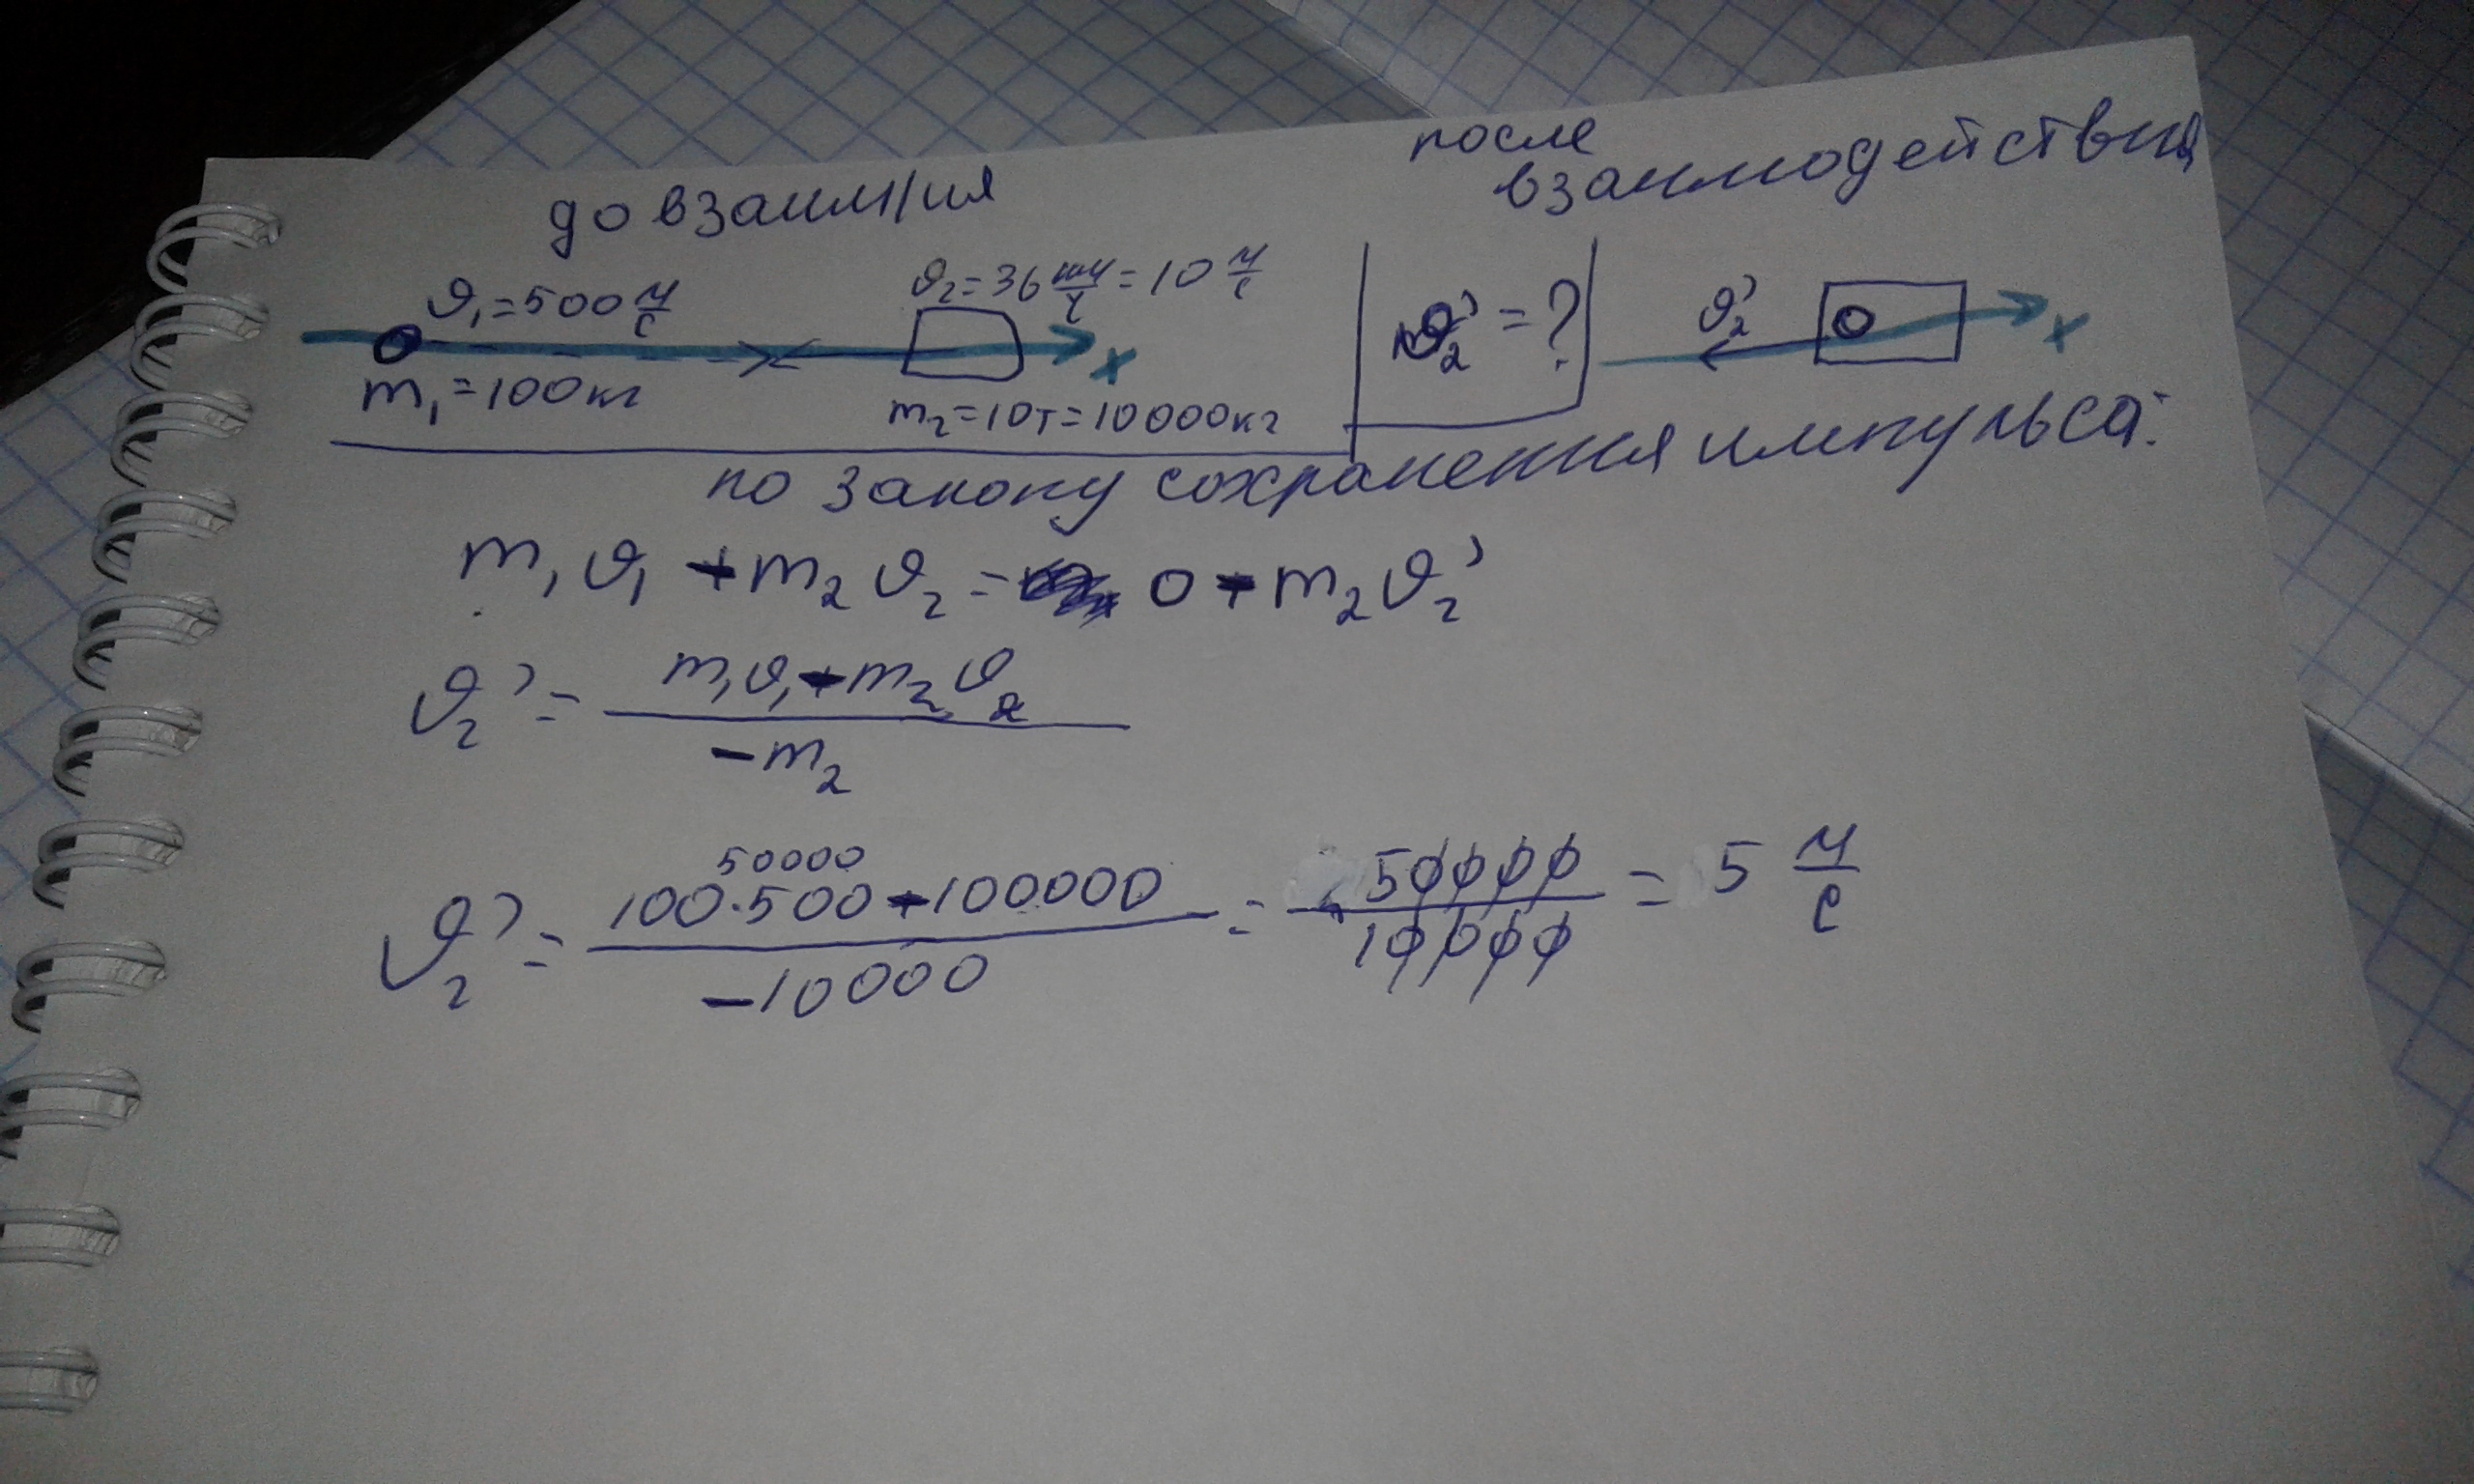 до взаим/ия
после
взаимодействия
ϑ₁=500 м/с
ϑ₂=36 км/ч=10 м/с
m₁=100кг
m₂=10т=10000кг
ϑ₂'=?
ϑ₂'
x
x
по закону сохранения импульса:
m₁ϑ₁-m₂ϑ₂=0-m₂ϑ₂'
ϑ₂'=(m₁ϑ₁-m₂ϑ₂)/(-m₂)
50000
ϑ₂'=(100·500-100000)/(-10000)=50000/10000=5 м/с